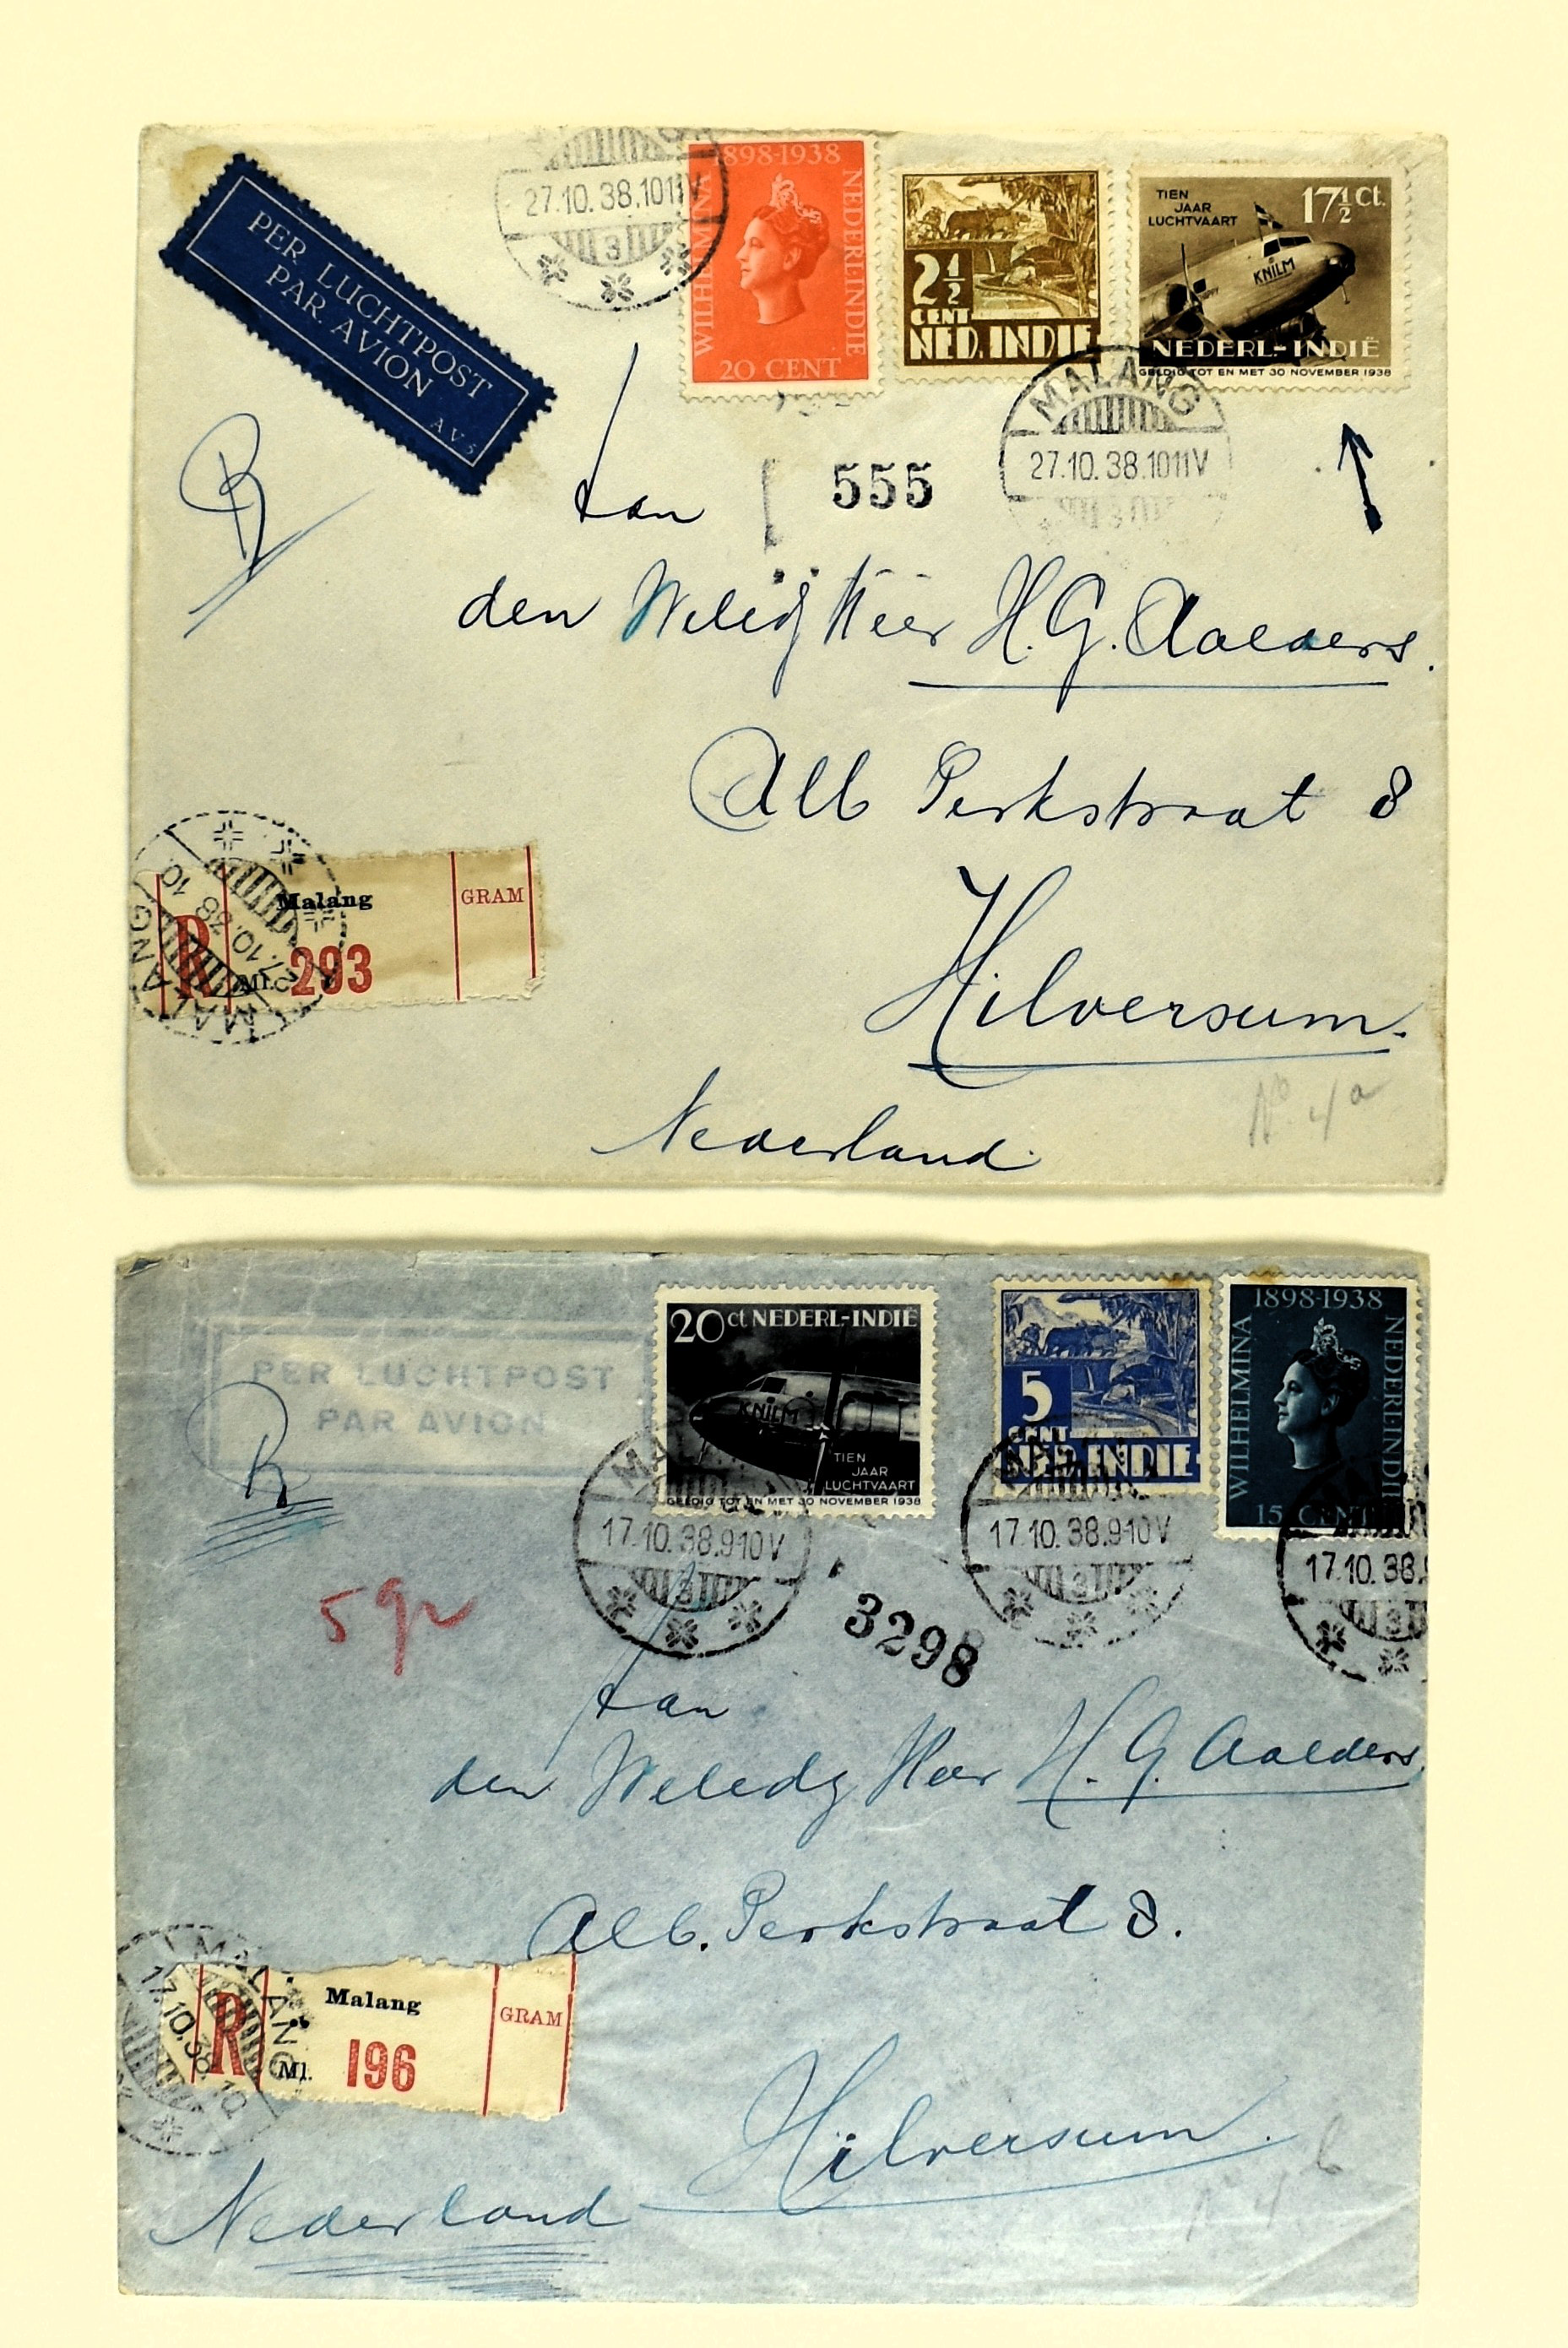 PER LUCHTPOST
PAR AVION
A V 5
27.10.38.1011V
3
1898-1938
WILHELMINA
NEDERL.INDIE
20 CENT
2½
CENT
NED. INDIE
TIEN
JAAR
LUCHTVAART
17½ Ct.
KNILM
NEDERL-INDIË
GELDIG TOT EN MET 30 NOVEMBER 1938
MALANG
27.10.38.1011V
R
Aan
555
den Weledg Heer H. G. Aalders.
Alb Perkstraat 8
Hilversum.
Nederland
No. 4a
MALANG
27.10.38 10
R
Malang
Ml. 293
GRAM
PER LUCHTPOST
PAR AVION
20 ct NEDERL-INDIË
KNILM
TIEN
JAAR
LUCHTVAART
GELDIG TOT EN MET 30 NOVEMBER 1938
5
CENT
NED. INDIE
1898-1938
WILHELMINA
NEDERL.INDIE
15 CENT
R
17.10.38.910V
3
17.10.38.910V
3
17.10.38.
3
5 gr
3298
Aan
den Weledg Heer H. G. Aalders
Alb. Perkstraat 8.
MALANG
17.10.38 10
R
Malang
Ml. 196
GRAM
Hilversum.
Nederland
No 4 b